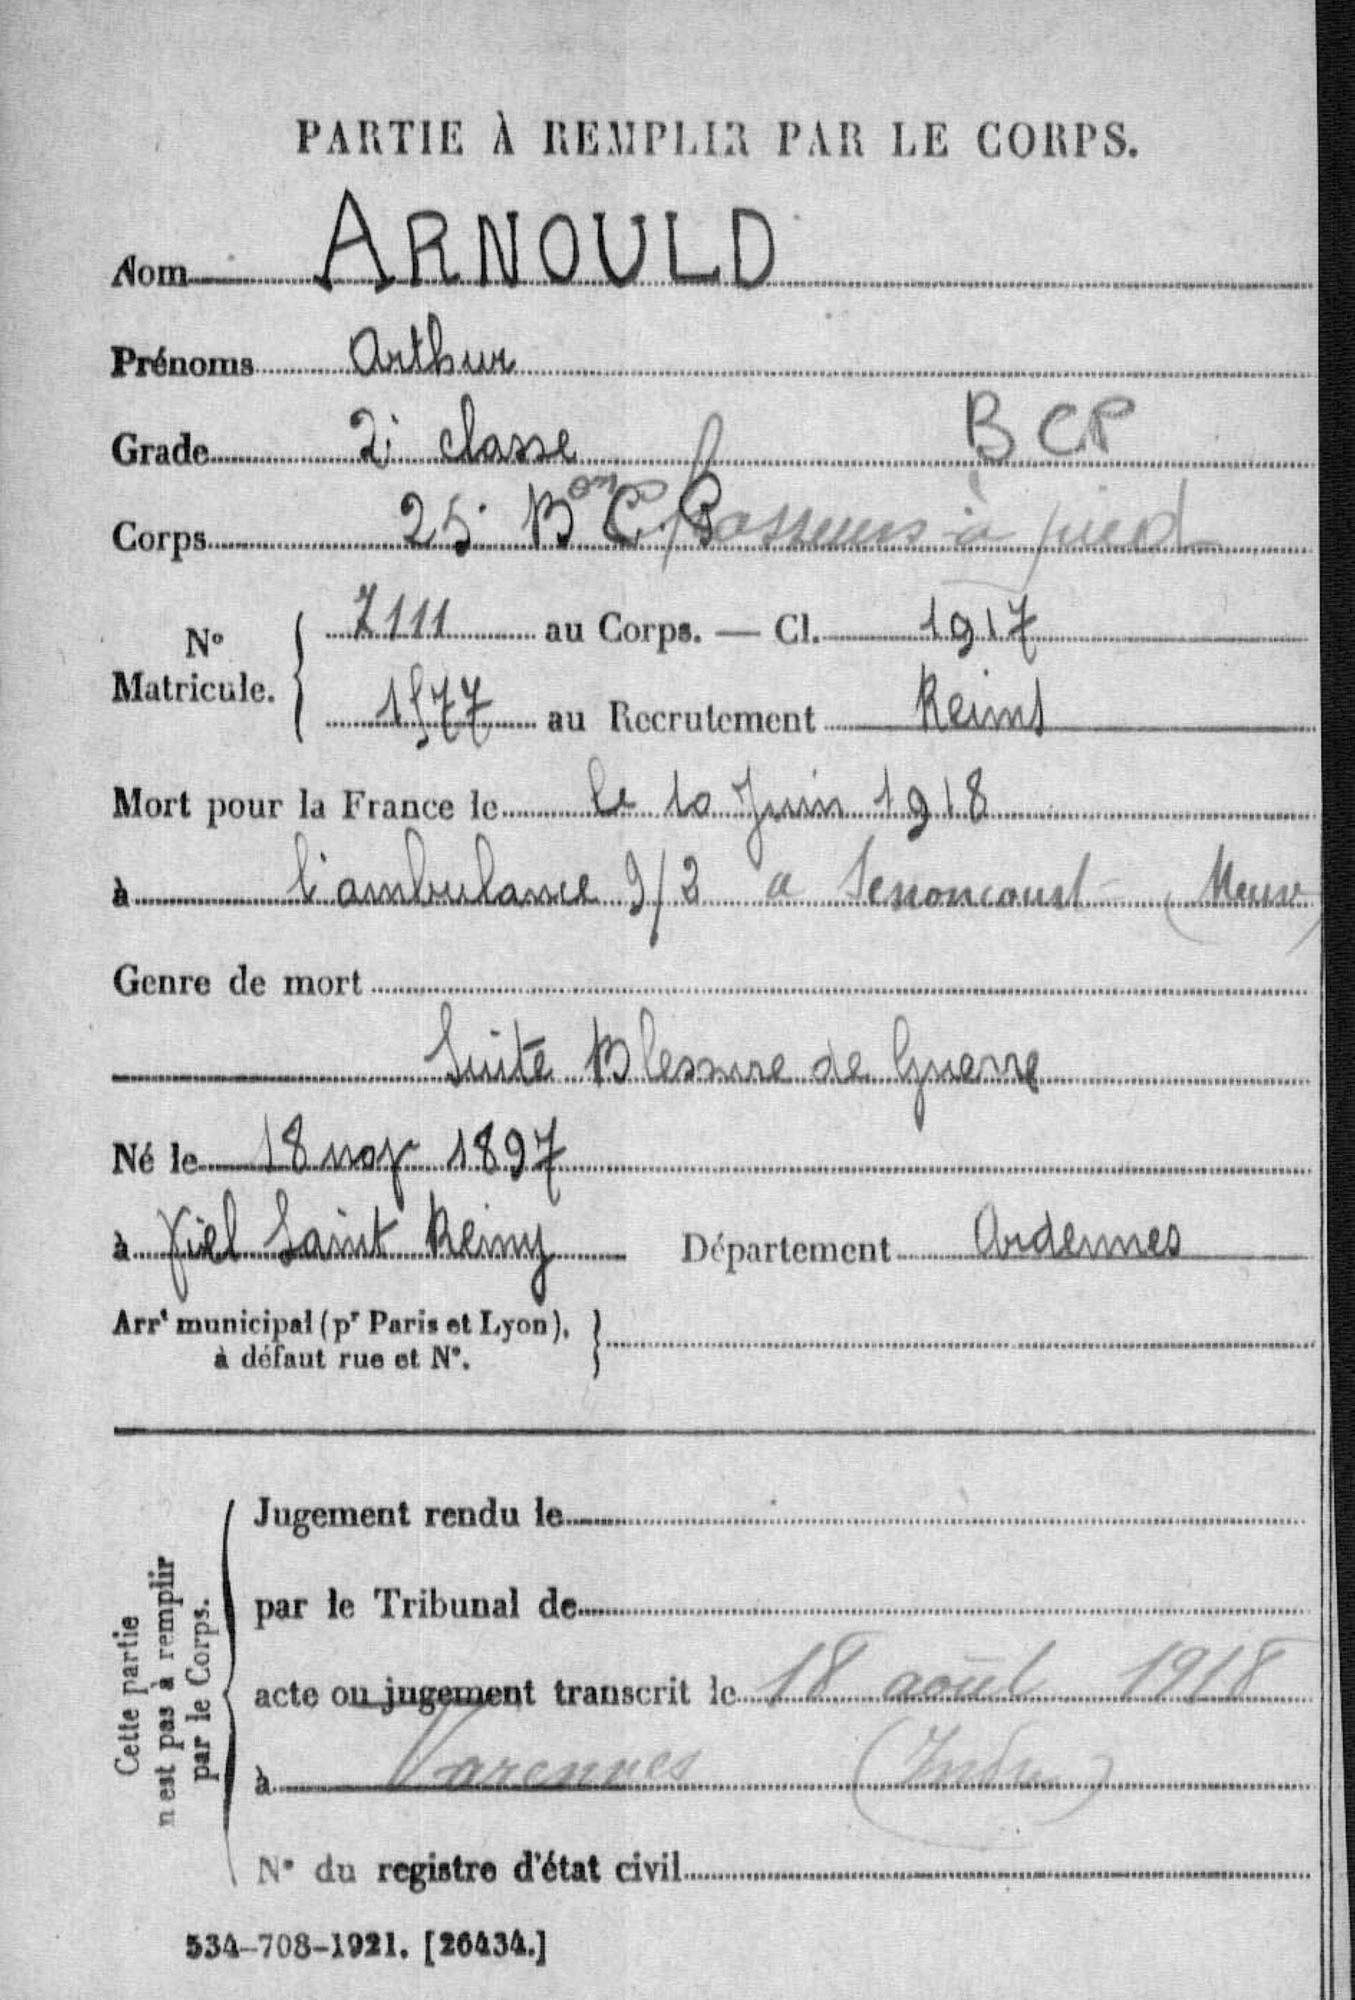 PARTIE À REMPLIR PAR LE CORPS.
Nom ARNOULD
Prénoms Arthur
Grade 2e classe BCP
Corps 25e Bon C.P. Chasseurs à pied
No Matricule. 7111 au Corps. — Cl. 1917
1577 au Recrutement Reims
Mort pour la France le le 10 Juin 1918
à l'ambulance 9/2 a Senoncourt (Meuse)
Genre de mort
Suite Blessure de Guerre
Né le 18 nov 1897
à Viel Saint Remy Département Ardennes
Arrt municipal (pr Paris et Lyon),
à défaut rue et No.
Cette partie
n'est pas à remplir
par le Corps.
Jugement rendu le
par le Tribunal de
acte ou jugement transcrit le 18 août 1918
à Varennes (Indre)
No du registre d'état civil
534-708-1921. [26434.]